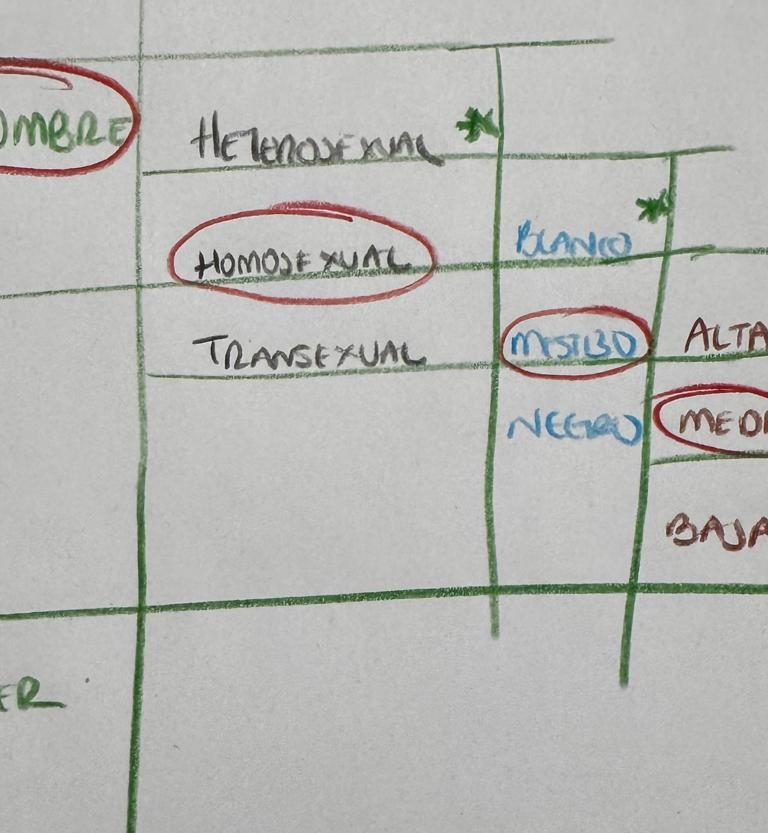 OMBRE
HETEROSEXUAL
HOMOSEXUAL
TRANSEXUAL
BLANCO
MESTIZO
NEGRO
ALTA
MEDI
BAJA
ER